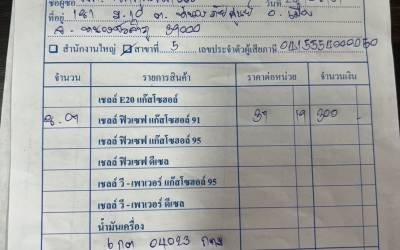 ที่อยู่ 181 ม.10 ต.
39000
สำนักงานใหญ่ สาขาที่ 5 เลขประจำตัวผู้เสียภาษี
จำนวน รายการสินค้า ราคาต่อหน่วย จำนวนเงิน
เชลล์ E20 แก๊สโซฮอล์
8.07 เชลล์ ฟิวเซฟ แก๊สโซฮอล์ 91 37 19 300
เชลล์ ฟิวเซฟ แก๊สโซฮอล์ 95
เชลล์ ฟิวเซฟ ดีเซล
เชลล์ วี - เพาเวอร์ แก๊สโซฮอล์ 95
เชลล์ วี - เพาเวอร์ ดีเซล
น้ำมันเครื่อง
6 กต 04023